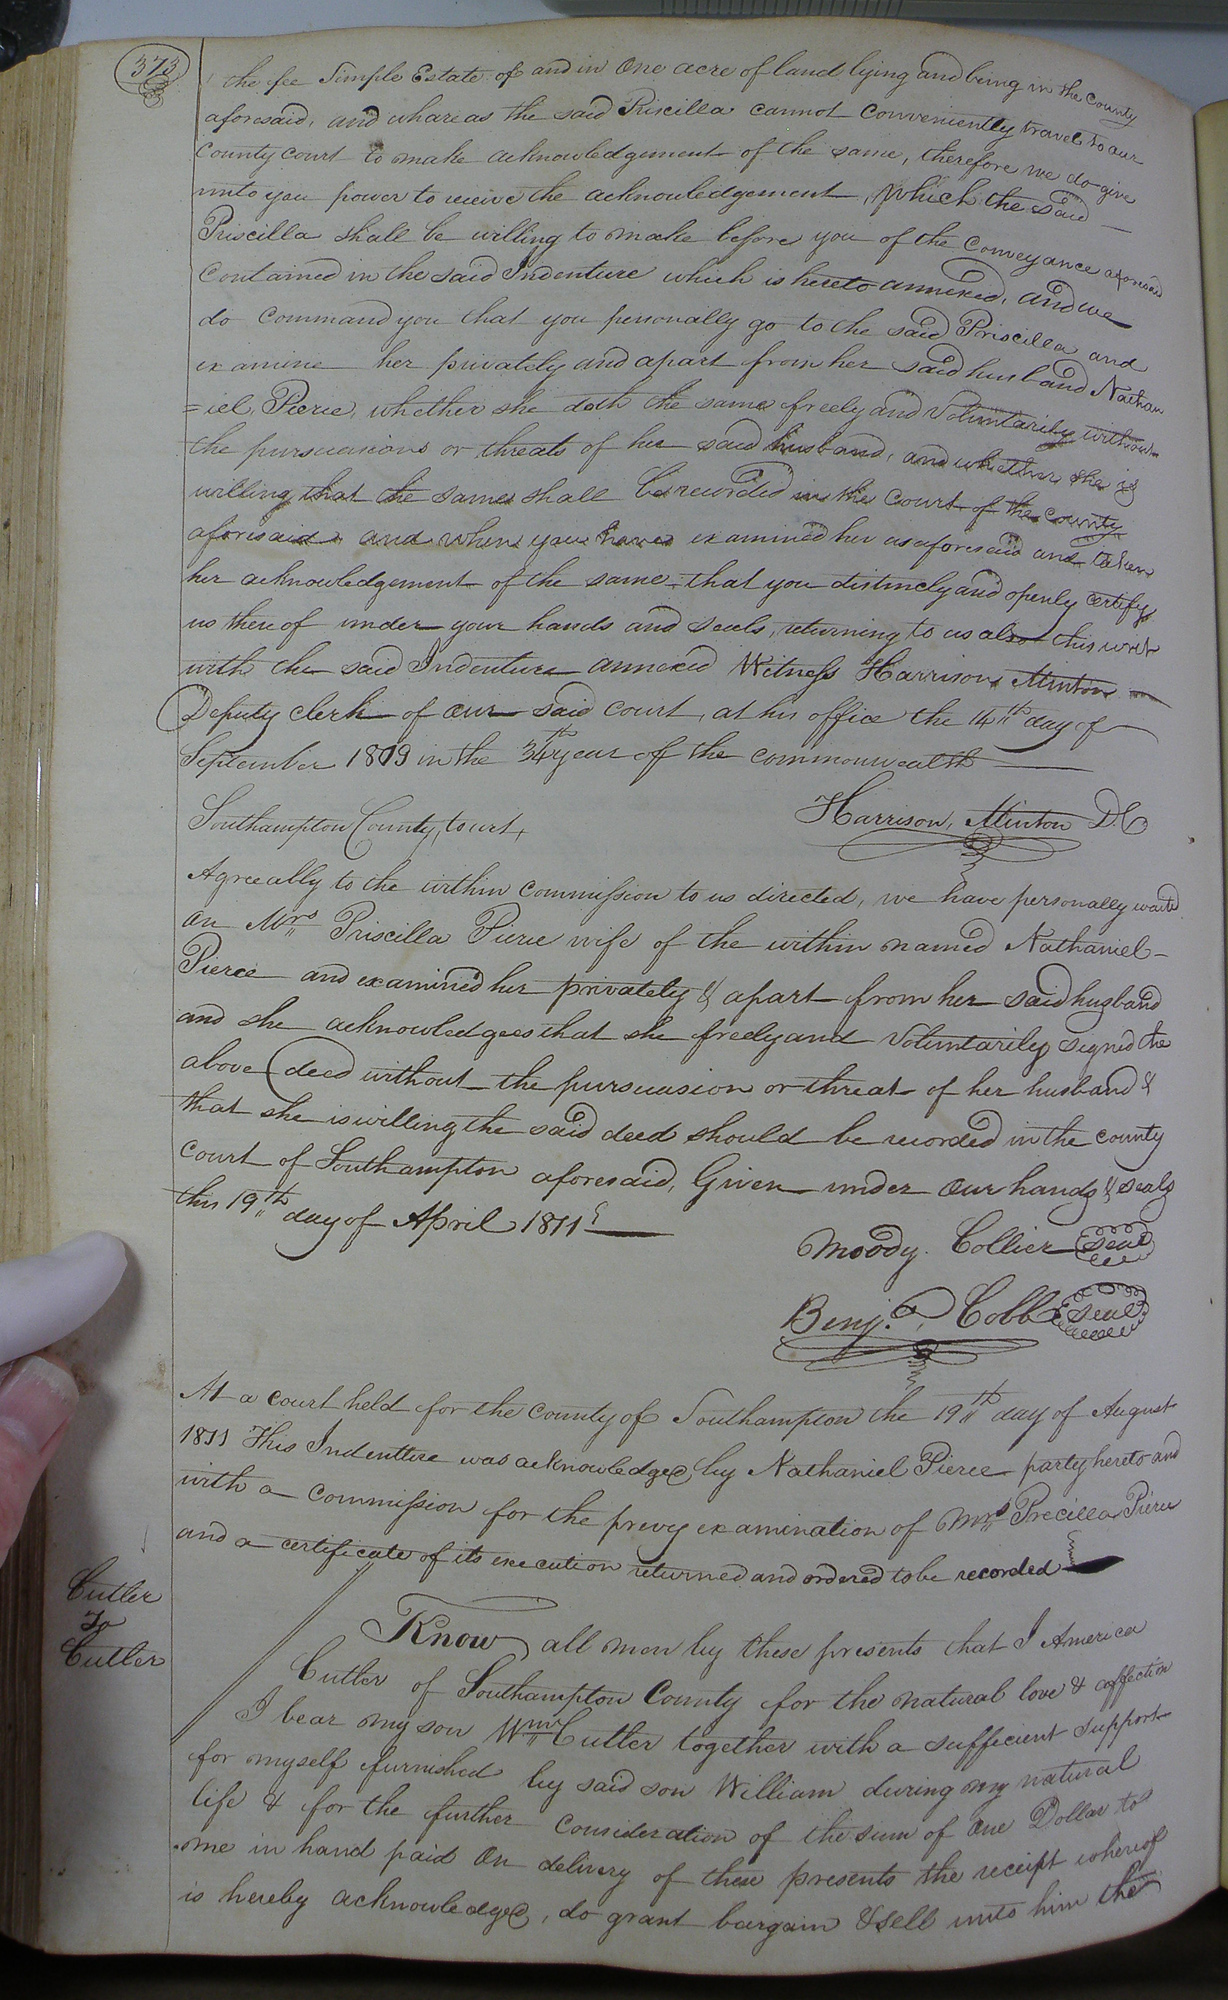 373
the fee Simple Estate of and in One acre of land lying and being in the County
aforesaid, and whareas the said Priscilla cannot conveniently travel to our
County court to make acknowledgement of the same, therefore we do give
unto you power to receive the acknowledgement, which the said
Priscilla shall be willing to make before you of the conveyance aforesaid
Contained in the said Indenture which is hereto annexed, and we
do command you that you personally go to the said Priscilla and
examine her privately and apart from her said husband Nathan
=iel Pierce, whether she doth the same freely and Voluntarily without
the pursuasions or threats of her said husband, and whether she is
willing that the same shall be recorded in the Court of the county
aforesaid and when you have examined her as aforesaid and taken
her acknowledgement of the same that you distincly and openly certify
us there of under your hands and seals, returning to us also this writ
with the said Indenture annexed Witness Harrison Minton
Deputy clerk of our said court, at his office the 14th day of
September 1809 in the 34th year of the commonwealth
Harrison, Minton D.C
Southampton County, Court,
Agreeably to the within commission to us directed, we have personally waited
on Mrs Priscilla Pierce wife of the within named Nathaniel
Pierce and examined her privately & apart from her said husband
and she acknowledges that she freely and Voluntarily signed the
above deed without the pursuasion or threat of her husband &
that she is willing the said deed should be recorded in the county
court of Southampton aforesaid, Given under our hands & seals
this 19th day of April 1811
Moody Collier seal
Benj.a Cobb seal
At a court held for the county of Southampton the 19th day of August
1811 This Indenture was acknowledged by Nathaniel Pierce party hereto and
with a commission for the prevy examination of Mrs Precilla Pierce
and a certificate of its execution returned and ordered to be recorded
Cutler
To
Cutler
Know all men by these presents that I America
Cutler of Southampton County for the natural love & affection
I bear my son Wm Cutler together with a sufficient support
for myself furnished by said son William during my natural
life & for the further consideration of the sum of one Dollar to
me in hand paid on delivery of these presents the receipt whereof
is hereby acknowledged, do grant bargain & sell unto him the